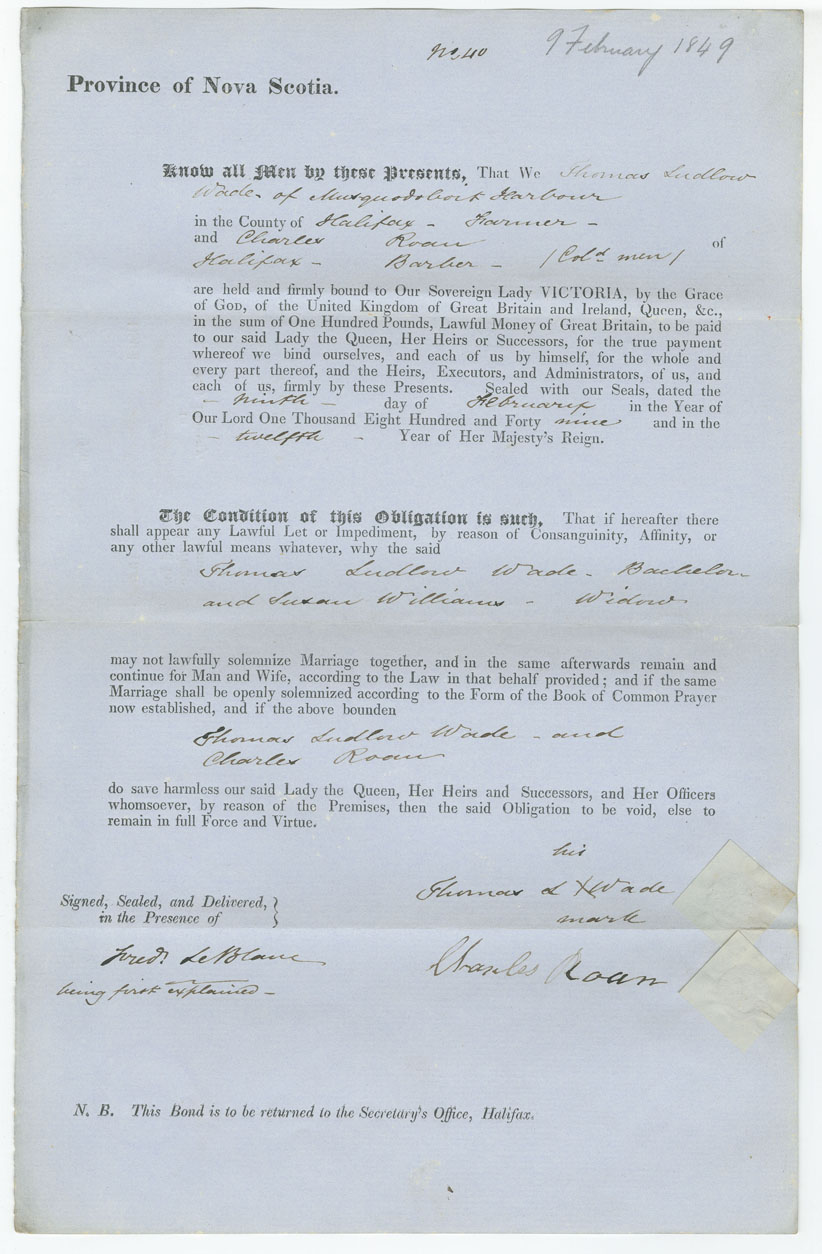 No. 40
9 February 1849
Province of Nova Scotia.
Know all Men by these Presents, That We Thomas Ludlow
Wade - of Musquodoboit Harbour
in the County of Halifax - Farmer -
and Charles Roan of
Halifax - Barber - (Cold men)
are held and firmly bound to Our Sovereign Lady VICTORIA, by the Grace
of GOD, of the United Kingdom of Great Britain and Ireland, Queen, &c.,
in the sum of One Hundred Pounds, Lawful Money of Great Britain, to be paid
to our said Lady the Queen, Her Heirs or Successors, for the true payment
whereof we bind ourselves, and each of us by himself, for the whole and
every part thereof, and the Heirs, Executors, and Administrators, of us, and
each of us, firmly by these Presents. Sealed with our Seals, dated the
- ninth - day of February in the Year of
Our Lord One Thousand Eight Hundred and Forty nine and in the
- twelfth - Year of Her Majesty's Reign.
The Condition of this Obligation is such, That if hereafter there
shall appear any Lawful Let or Impediment, by reason of Consanguinity, Affinity, or
any other lawful means whatever, why the said
Thomas Ludlow Wade - Bachelor
and Susan Williams - Widow
may not lawfully solemnize Marriage together, and in the same afterwards remain and
continue for Man and Wife, according to the Law in that behalf provided; and if the same
Marriage shall be openly solemnized according to the Form of the Book of Common Prayer
now established, and if the above bounden
Thomas Ludlow Wade - and
Charles Roan
do save harmless our said Lady the Queen, Her Heirs and Successors, and Her Officers
whomsoever, by reason of the Premises, then the said Obligation to be void, else to
remain in full Force and Virtue.
his
Thomas L X Wade
mark
Signed, Sealed, and Delivered, }
in the Presence of
Fredk. LeBlanc
being first explained -
Charles Roan
N. B. This Bond is to be returned to the Secretary's Office, Halifax.